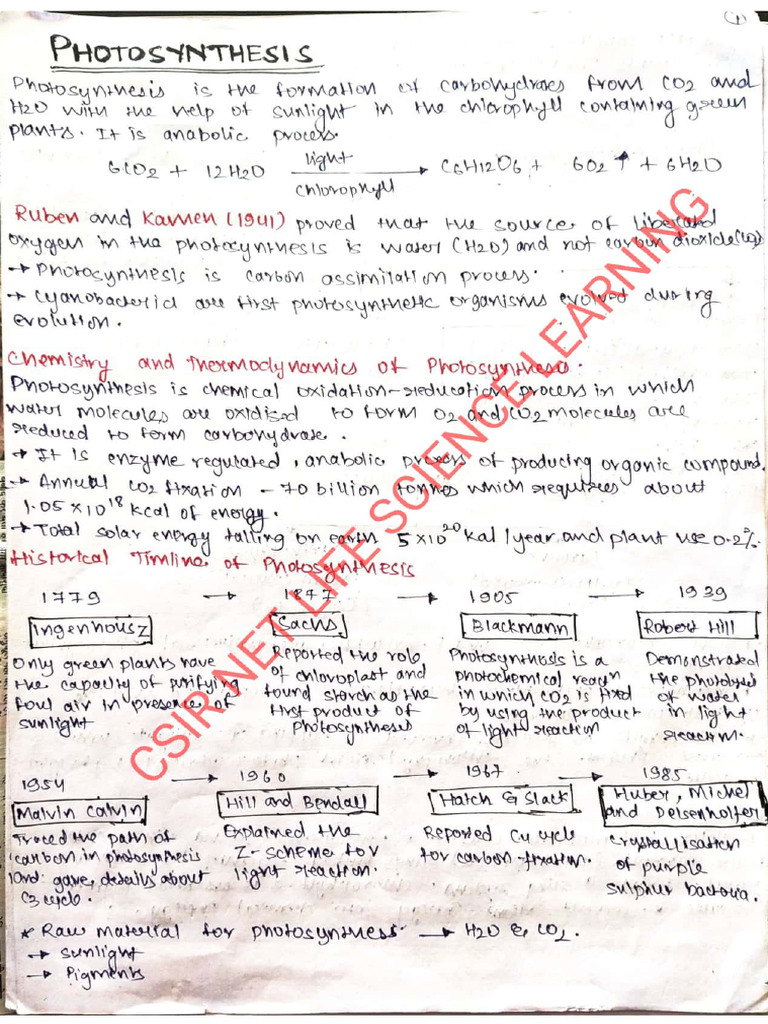 1
PHOTOSYNTHESIS
Photosynthesis is the formation of carbohydrates from CO2 and
H2O with the help of sunlight in the chlorophyll containing green
plants. It is anabolic process.
6CO2 + 12H2O light chlorophyll → C6H12O6 + 6O2↑ + 6H2O
Ruben and Kamen (1941) proved that the source of liberated
oxygen in the photosynthesis is water (H2O) and not carbon dioxide (CO2)
→ Photosynthesis is carbon assimilation process.
→ Cyanobacteria are first photosynthetic organisms evolved during
evolution.
Chemistry and Thermodynamics of Photosynthesis.
Photosynthesis is chemical oxidation-reducation process in which
water molecules are oxidised to form O2 and CO2 molecules are
reduced to form carbohydrate.
→ It is enzyme regulated, anabolic process of producing organic compound.
→ Annual CO2 fixation - 70 billion tonnes which requires about
1.05 × 10^18 Kcal of energy.
→ Total solar energy falling on earth 5 × 10^20 Kcal/year and plant use 0.2%.
Historical Timline of Photosynthesis
1779 → 1877 → 1905 → 1939
Ingenhousz Sachs Blackmann Robert Hill
Only green plants have
the capacity of purifying
foul air in presence of
sunlight
Reported the role
of chloroplast and
found starch as the
first product of
Photosynthesis
Photosynthesis is a
photochemical reacn
in which CO2 is fixed
by using the product
of light reaction
Demonstrated
the photolysis
of water
in light
reaction.
1954 → 1960 → 1967 → 1985
Malvin Calvin Hill and Bendall Hatch & Slack Huber, Michel
and Deisenhofer
Traced the path of
carbon in photosynthesis
and gave details about
C3 cycle.
Explained the
Z-scheme for
light reaction.
Reported C4 cycle
for carbon-fixation.
Crystallisation
of purple
sulphur bacteria.
* Raw material for photosynthesis → H2O & CO2.
→ Sunlight
→ Pigments
CSIR NET LIFE SCIENCE LEARNING